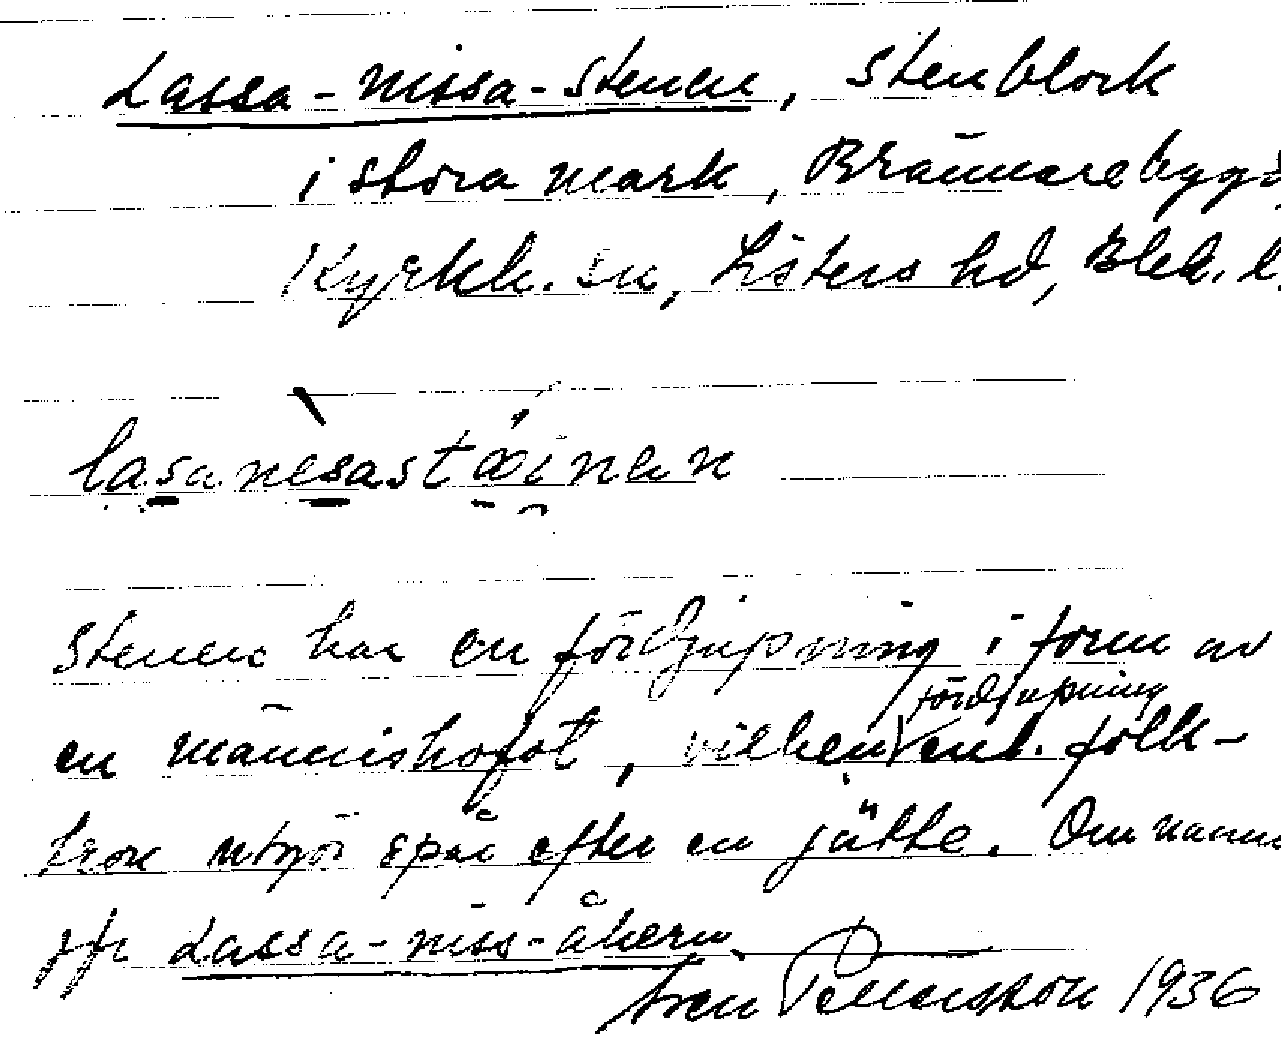 Lassa-nissa-stenen, stenblock
i stora mark, Brännarebygd,
Kyrkh. sn, Listers hd, Blek. l.
lasanesastæinen
Stenen har en fördjupning i form av
fördjupning
en människofot, vilken enl. folk-
tron utgör spår efter en jätte. Om namnet
jfr Lassa-niss-åkern.
Sven Pettersson 1936